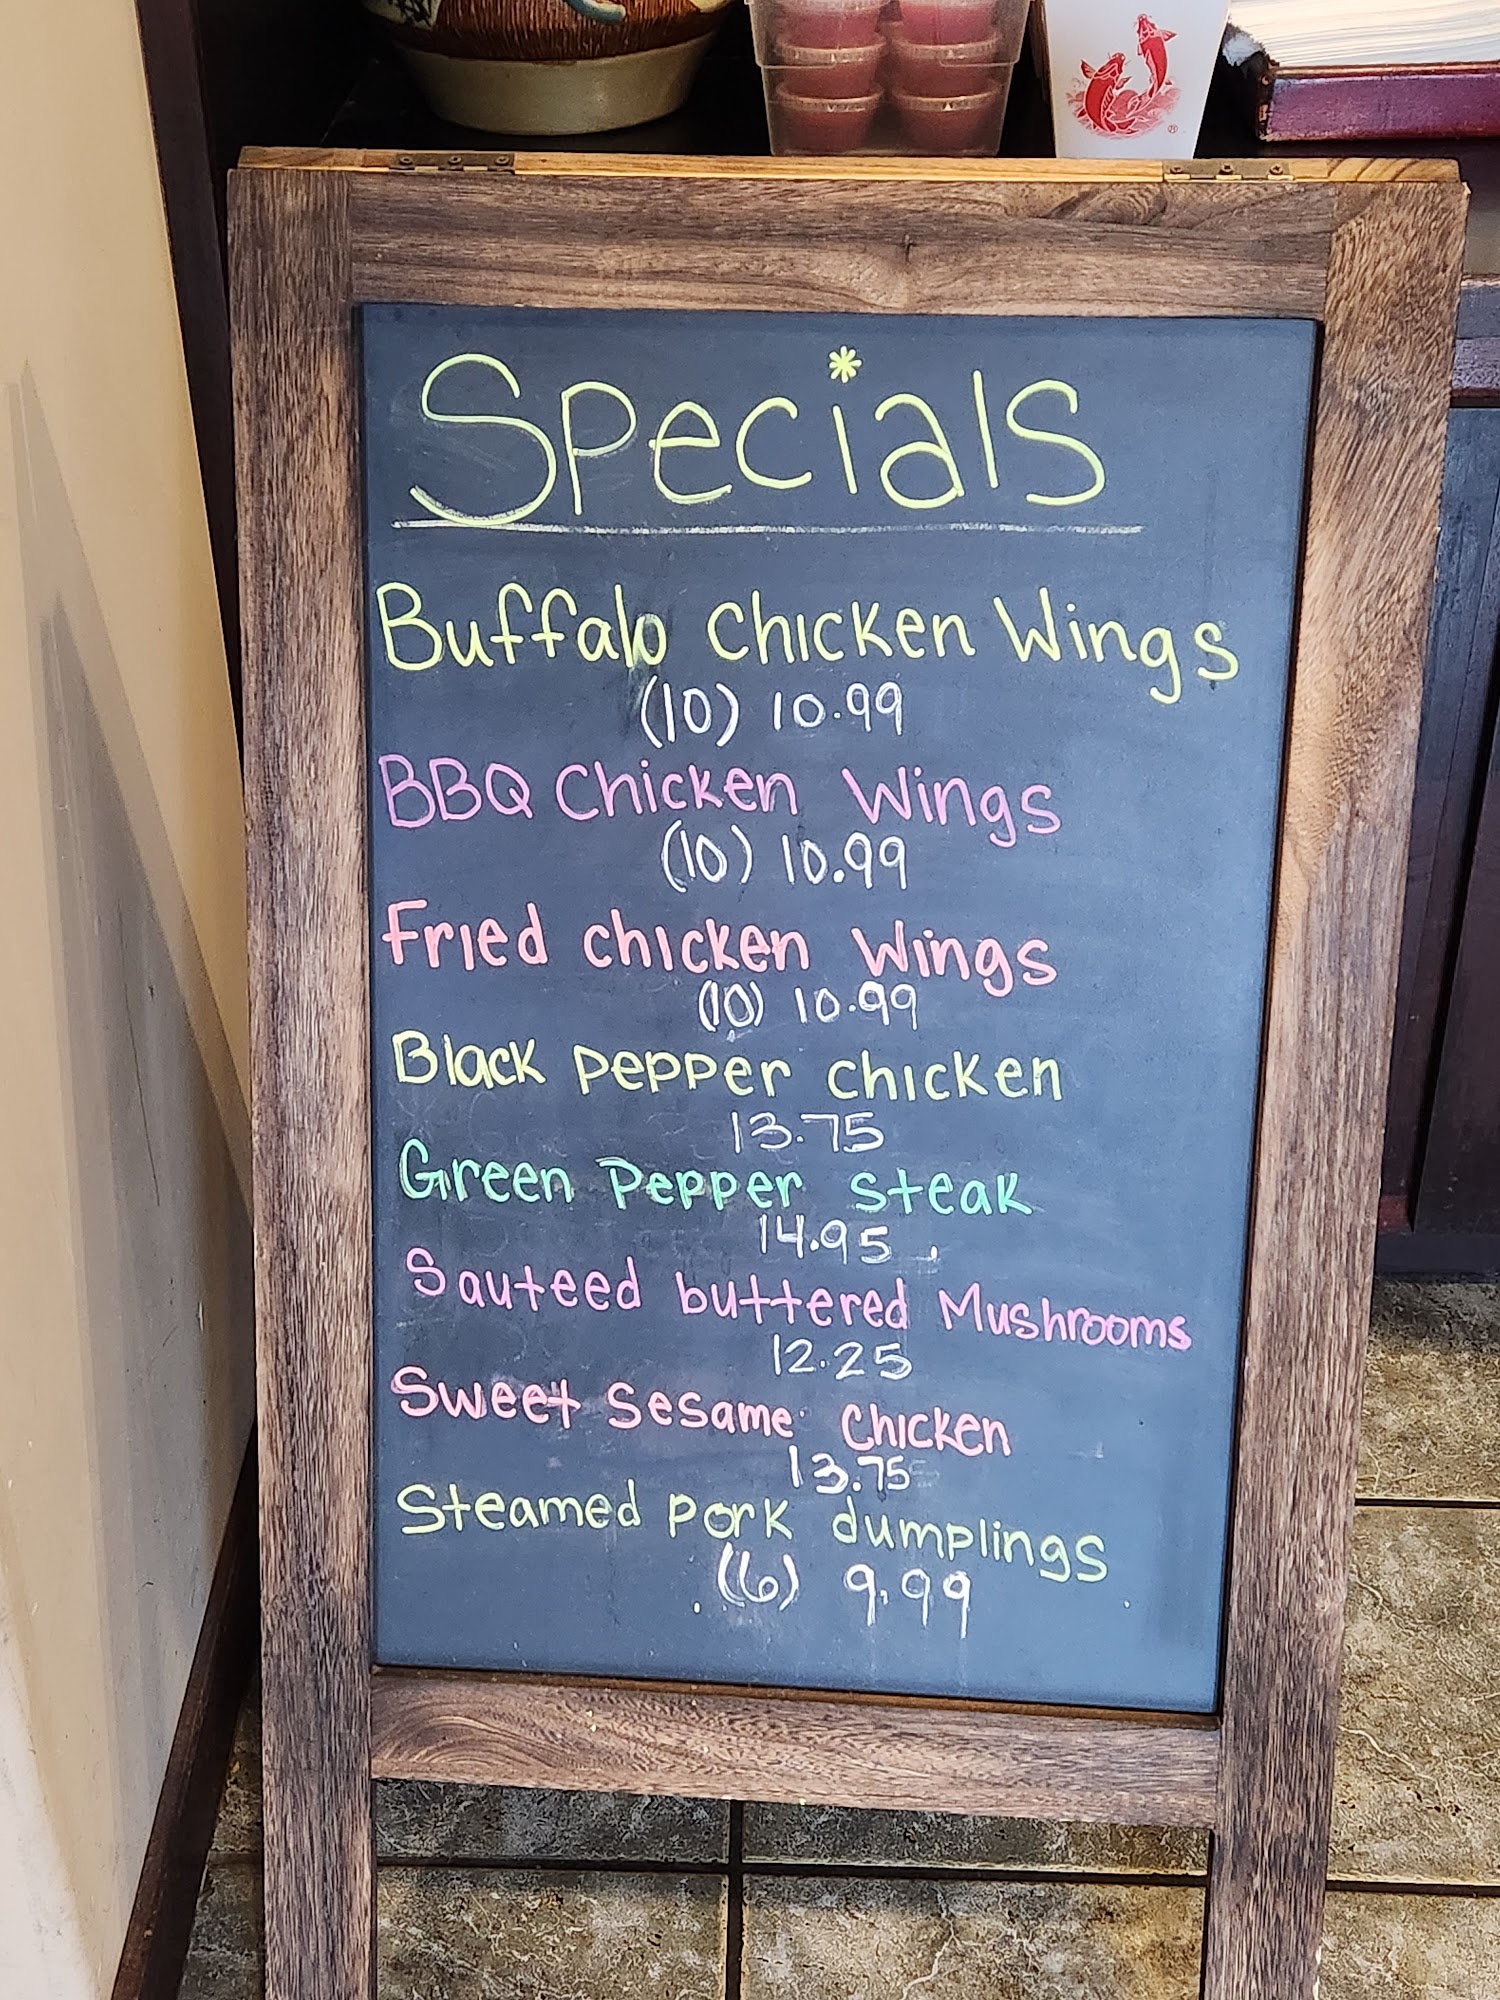 Specials
Buffalo Chicken Wings
(10) 10.99
BBQ Chicken Wings
(10) 10.99
Fried chicken Wings
(10) 10.99
Black pepper chicken
13.75
Green Pepper steak
14.95
Sauteed buttered Mushrooms
12.25
Sweet Sesame Chicken
13.75
Steamed pork dumplings
(6) 9.99
®